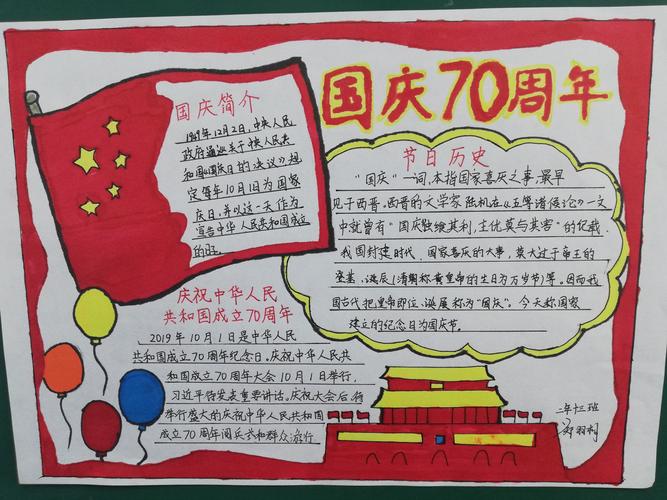 国庆70周年
国庆简介
1949年12月2日,中央人民
政府通过关于中央人民共
和国《国庆日的决议》规
定每年10月1日为国家
庆日,并以这一天作为
宣告中华人民共和国成立
的日子
节日历史
“国庆”一词,本指国家喜庆之事,最早
见于西晋,西晋的文学家陆机在《五等诸侯论》一文
中就曾有“国庆独飨其利,主忧莫与其害”的记载,
我国封建时代、国家喜庆的大事,莫大过于帝王的
登基、诞辰(清朝称皇帝的生日为万岁节)等。因而我
国古代把皇帝即位、诞辰称为“国庆”。今天称国家
建立的纪念日为国庆节。
庆祝中华人民
共和国成立70周年
2019年10月1日是中华人民
共和国成立70周年纪念日。庆祝中华人民共
和国成立70周年大会10月1日举行,
习近平将发表重要讲话。庆祝大会后将
举行盛大的庆祝中华人民共和国
成立70周年阅兵式和群众游行
二年十三班